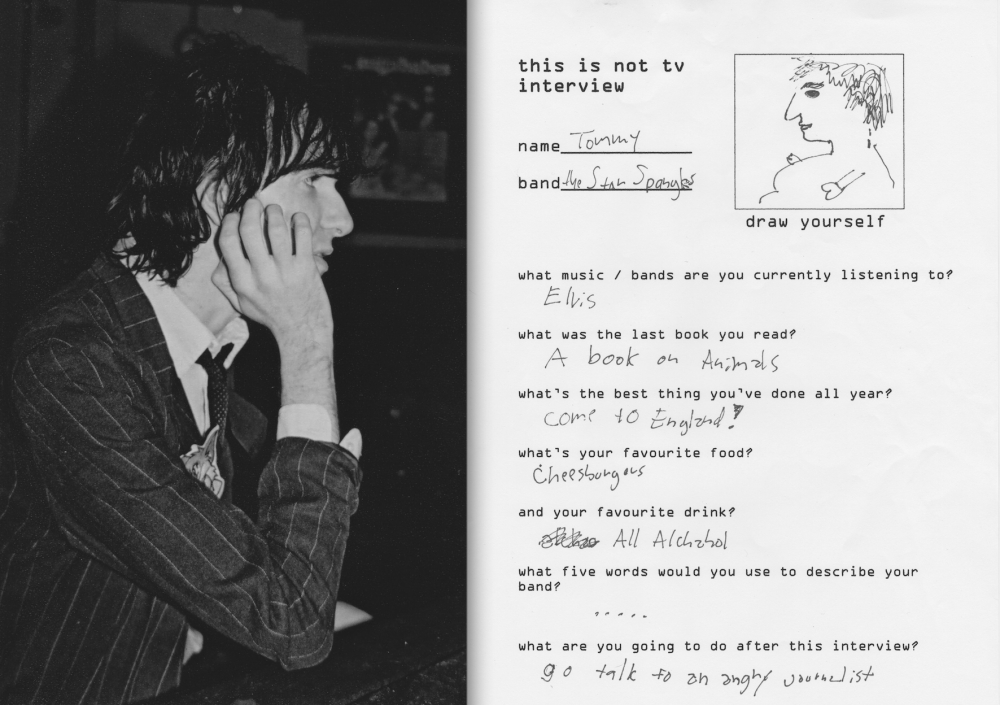 this is not tv
interview
name Tommy
band the Star Spangles
draw yourself
what music / bands are you currently listening to?
Elvis
what was the last book you read?
A book on Animals
what's the best thing you've done all year?
come to England!
what's your favourite food?
Cheesburgers
and your favourite drink?
All Alchahol
what five words would you use to describe your
band?
.....
what are you going to do after this interview?
go talk to an angry journalist